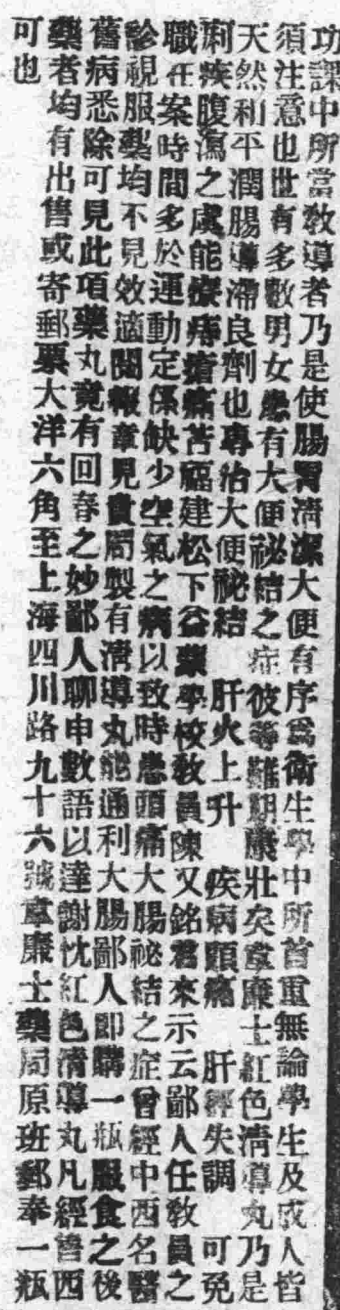 功課中所當敎導者乃是使腸胃淸潔大便有序爲衛生學中所首重無論學生及成人皆
須注意也世有多數男女患有大便祕結之症彼等難期康壯矣韋廉士紅色淸導丸乃是
天然利平潤腸導滯良劑也專治大便祕結 肝火上升 疾病頭痛 肝經失調 可免
痢疾腹瀉之虞能療痔瘡痛苦福建松下益藥學校敎員陳又銘君來示云鄙人任敎員之
職在案時間多於運動定係缺少空氣之病以致時患頭痛大腸祕結之症曾經中西名醫
診視服藥均不見效適閱報章見貴局製有淸導丸能通利大腸鄙人卽購一瓶服食之後
舊病悉除可見此項藥丸竟有回春之妙鄙人聊申數語以達謝忱紅色淸導丸凡經售西
藥者均有出售或寄郵票大洋六角至上海四川路九十六號韋廉士藥局原班郵奉一瓶
可也